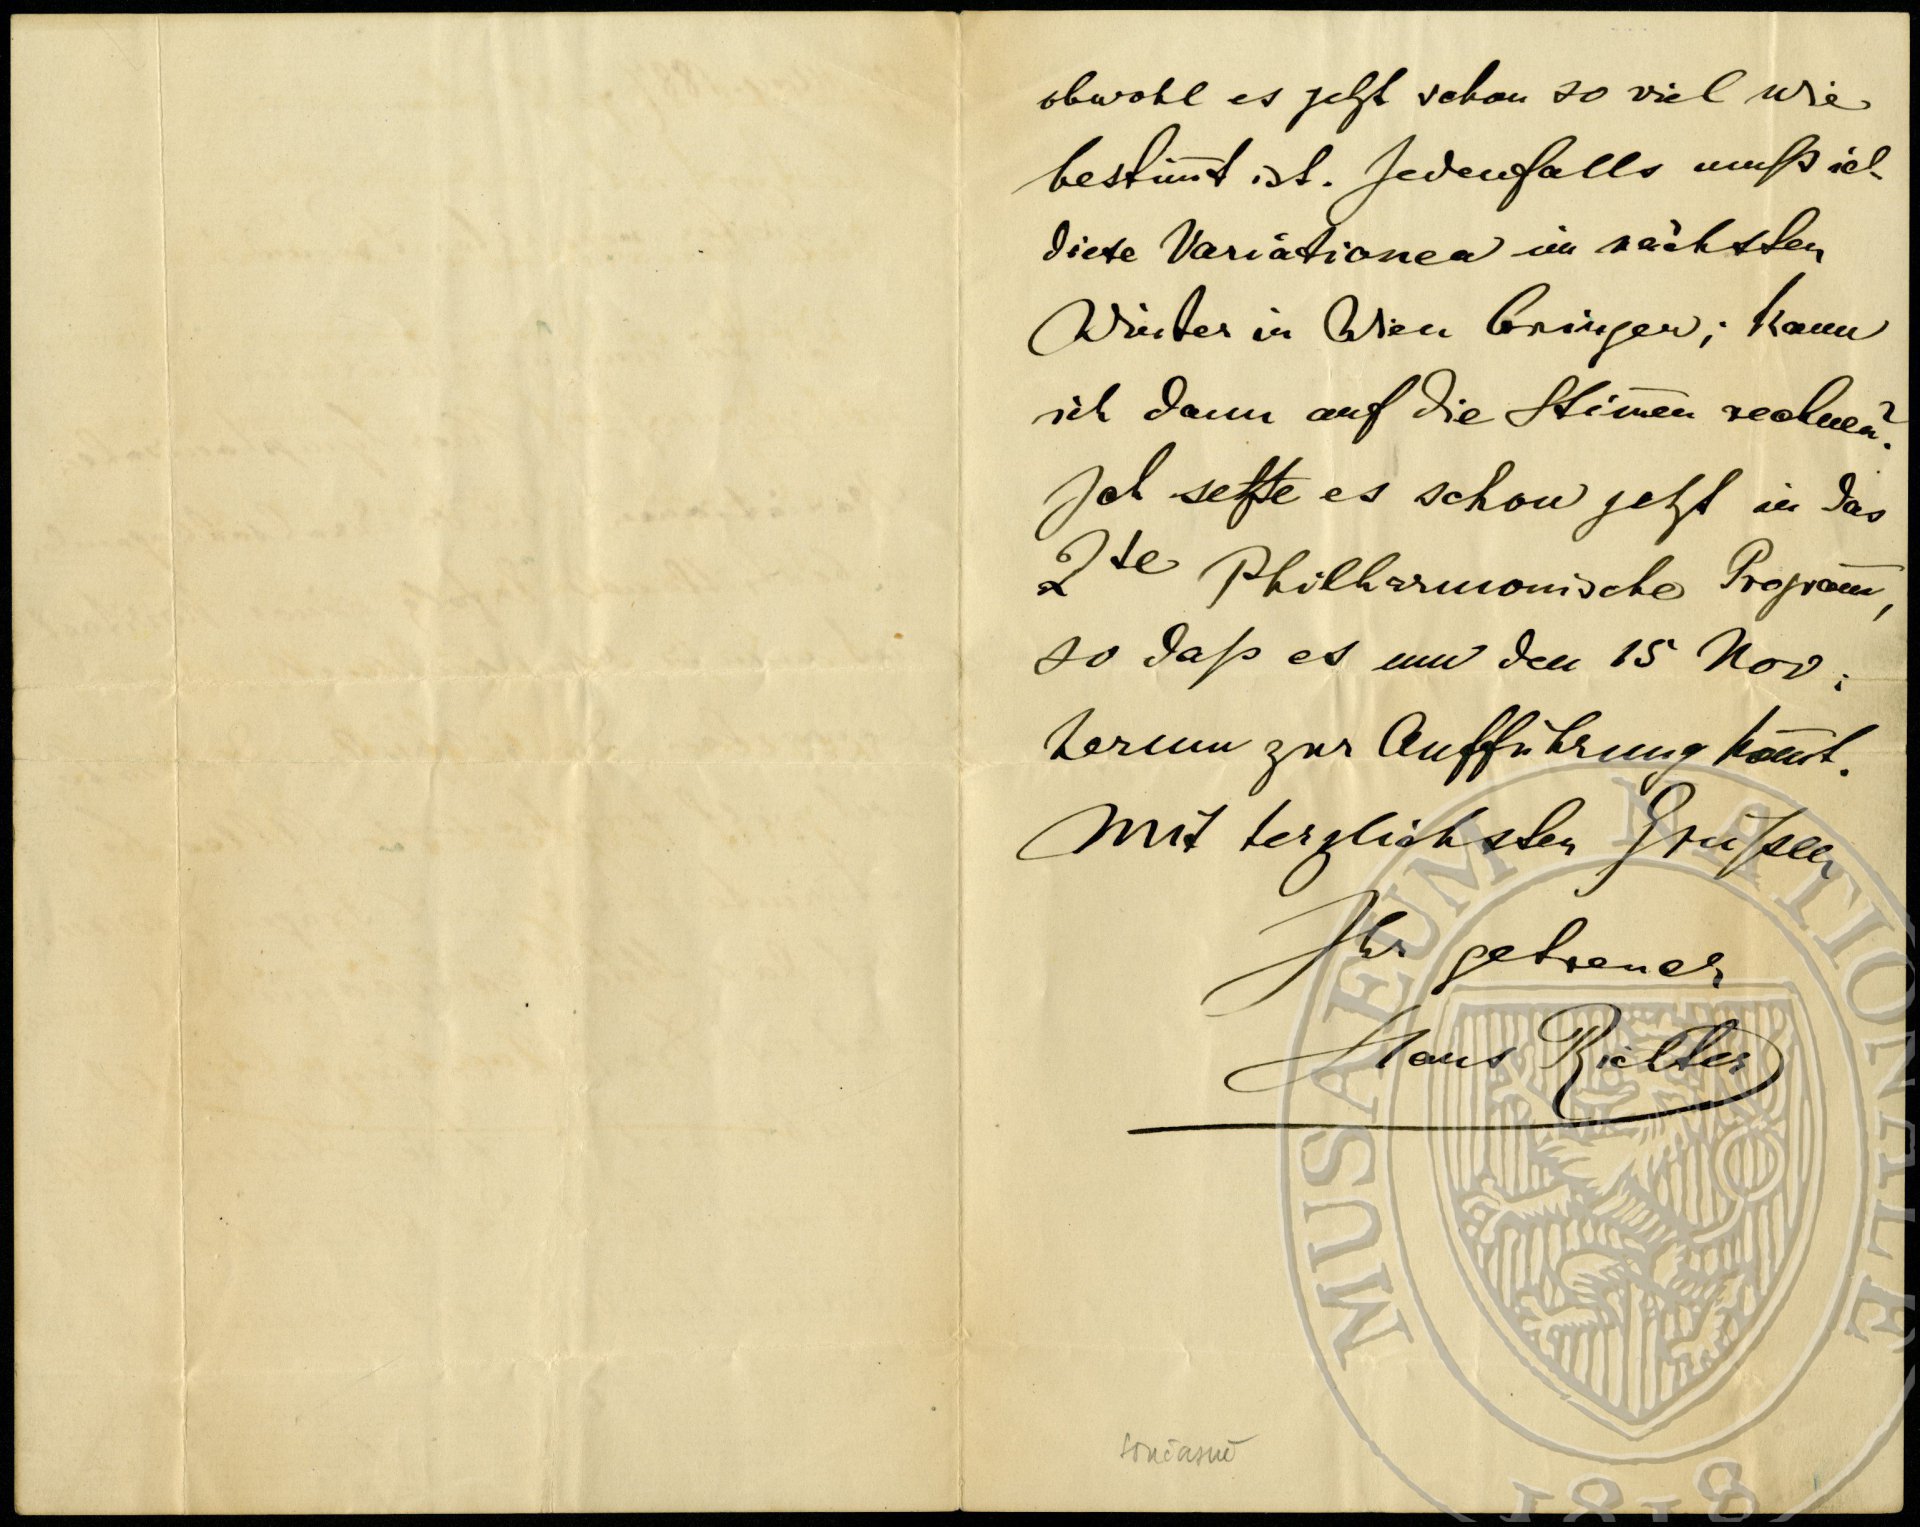 obwohl es jetzt schon so viel wie
bestim̄t ist. Jedenfalls muß ich
diese Variationen im nächsten
Winter in Wien bringen; kann
ich dann auf die Stim̄en rechnen?
Ich setzte es schon jetzt in das
2te Philharmonische Program̄,
so daß es um den 15 Nov:
herum zur Aufführung kom̄t.
Mit herzlichsten Grüßen
Ihr getreuer
Hans Richter
současně
MUSAEUM NATIONALE
1818